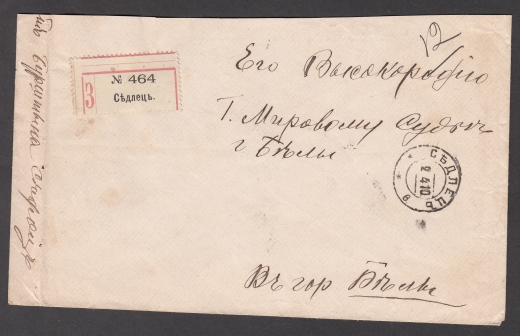 12
№ 464
З
Сѣдлецъ.
Его Высокородію
Г. Мировому Судьѣ
г Бѣлы
СѢДЛЕЦЪ
2 4 10
Въ гор Бѣлы
отъ